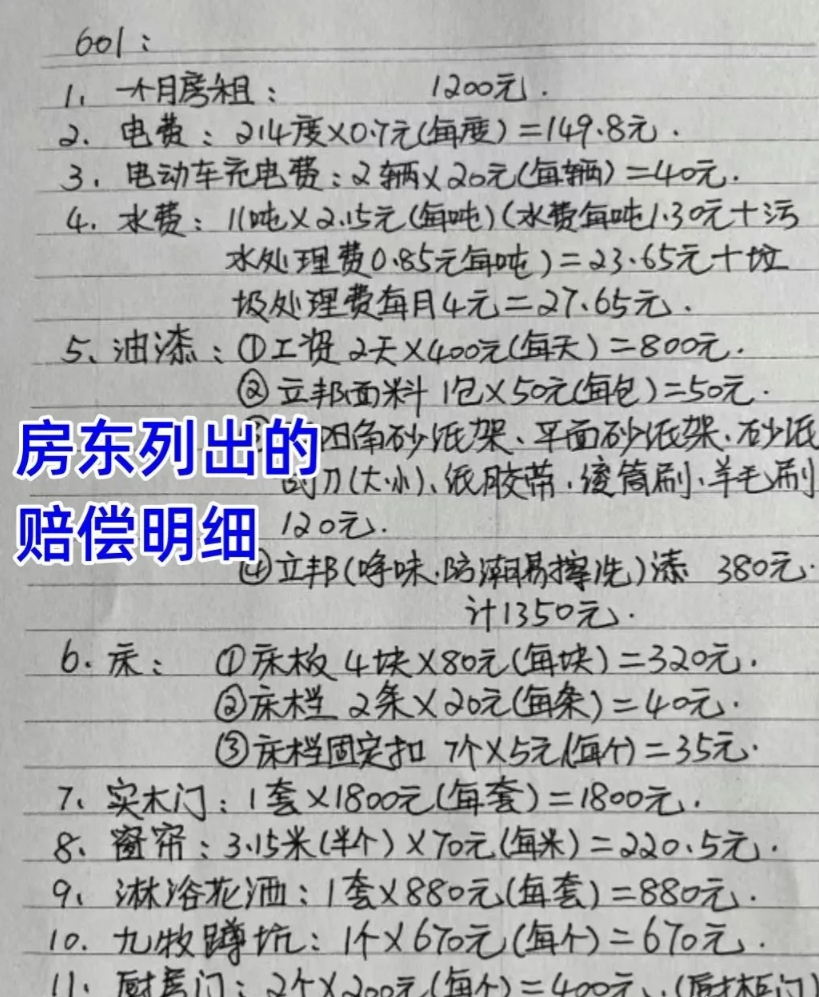 601：
1、一个月房租： 1200元．
2、电费：214度×0.7元(每度)=149.8元．
3、电动车充电费：2辆×20元(每辆)=40元．
4、水费：11吨×2.15元(每吨)(水费每吨1.30元+污
水处理费0.85元每吨)=23.65元+垃
圾处理费每月4元=27.65元．
5、油漆：①工资 2天×400元(每天)=800元．
②立邦面料 1包×50元(每包)=50元．
房东列出的
阴角砂纸架、平面砂纸架、砂纸
刮刀(大、小)、纸胶带、滚筒刷、羊毛刷
120元．
赔偿明细
④立邦(净味、防潮易擦洗)漆 380元．
计1350元．
6、床： ①床板 4块×80元(每块)=320元．
②床栏 2条×20元(每条)=40元．
③床栏固定扣 7个×5元(每个)=35元．
7、实木门：1套×1800元(每套)=1800元．
8、窗帘：3.15米(半个)×70元(每米)=220.5元．
9、淋浴花洒：1套×880元(每套)=880元．
10、九牧蹲坑：1个×670元(每个)=670元．
11、厨房门：2个×200元(每个)=400元．(厨柜门)